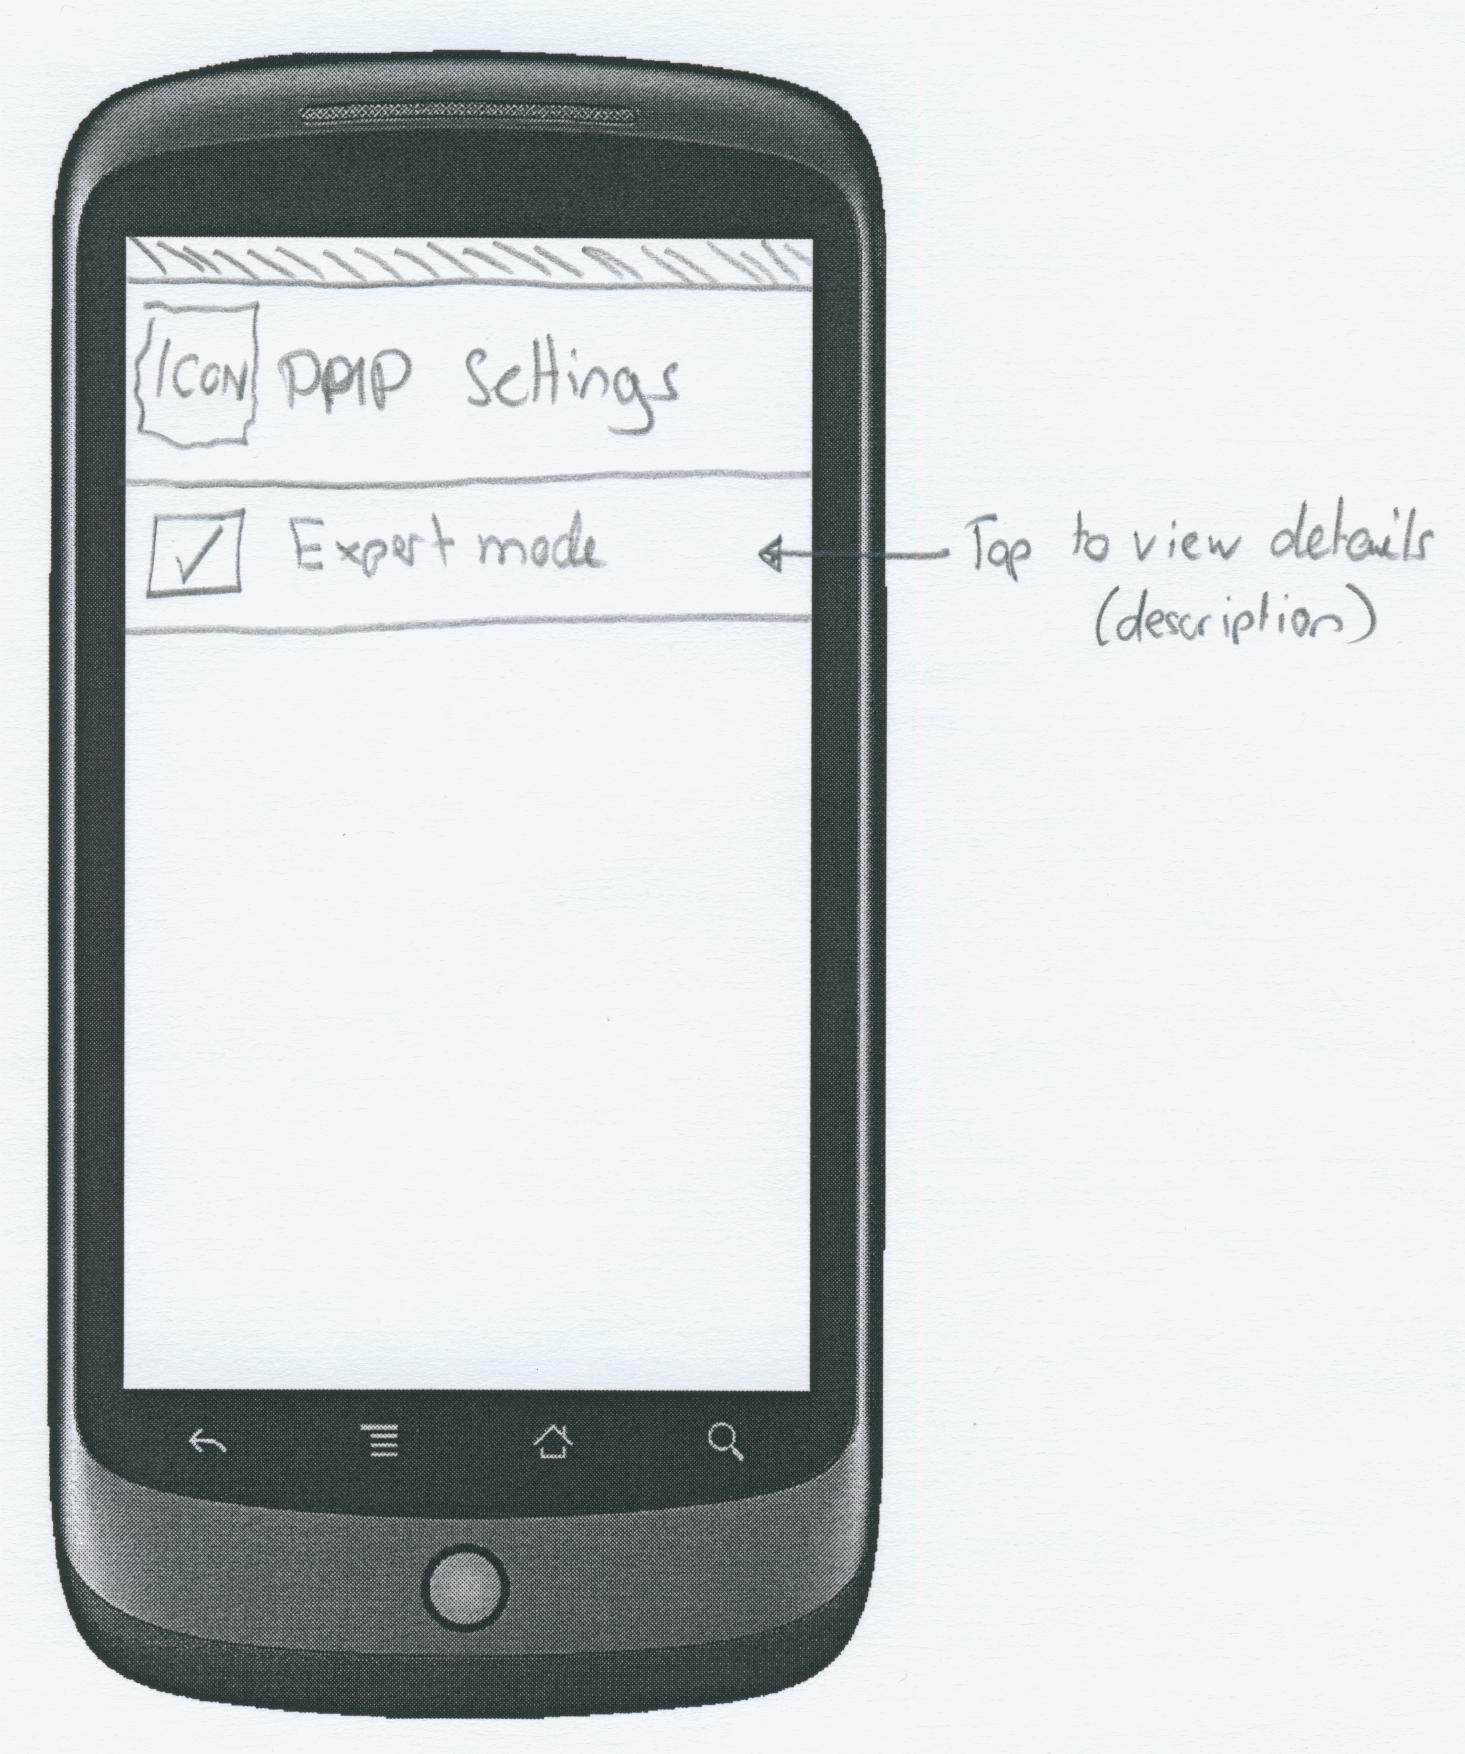 ICON PPIP Settings
Expert mode
Tap to view details
(description)